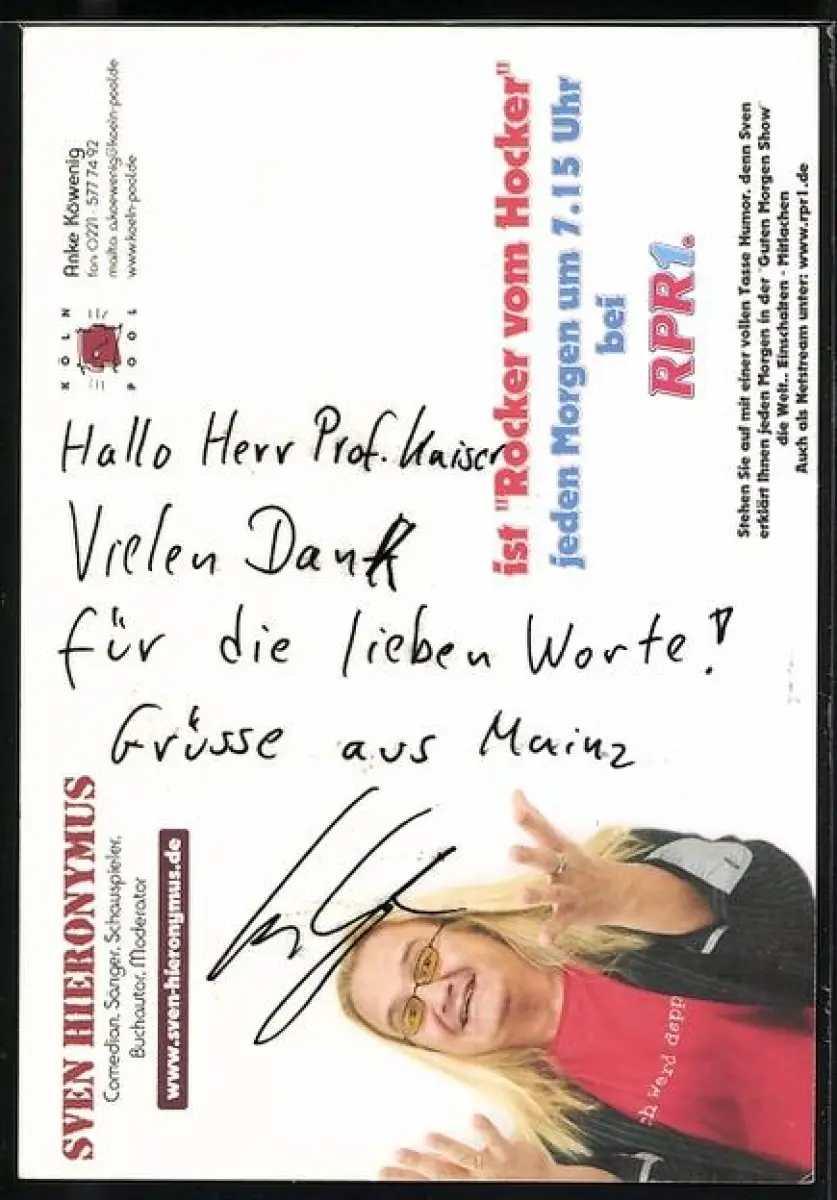 SVEN HIERONYMUS
Comedian, Sänger, Schauspieler,
Buchautor, Moderator
www.sven-hieronymus.de
KÖLN
POOL
Anke Köwenig
fon 0221 - 577 74 92
mailto a.koewenig@koeln-pool.de
www.koeln-pool.de
Hallo Herr Prof. Kaiser
Vielen Dank
für die lieben Worte!
Grüsse aus Mainz
ist "Rocker vom Hocker"
jeden Morgen um 7.15 Uhr
bei
RPR1.
Stehen Sie auf mit einer vollen Tasse Humor, denn Sven
erklärt Ihnen jeden Morgen in der "Guten Morgen Show"
die Welt.. Einschalten - Mitlachen
Auch als Netstream unter: www.rpr1.de
ch werd depp